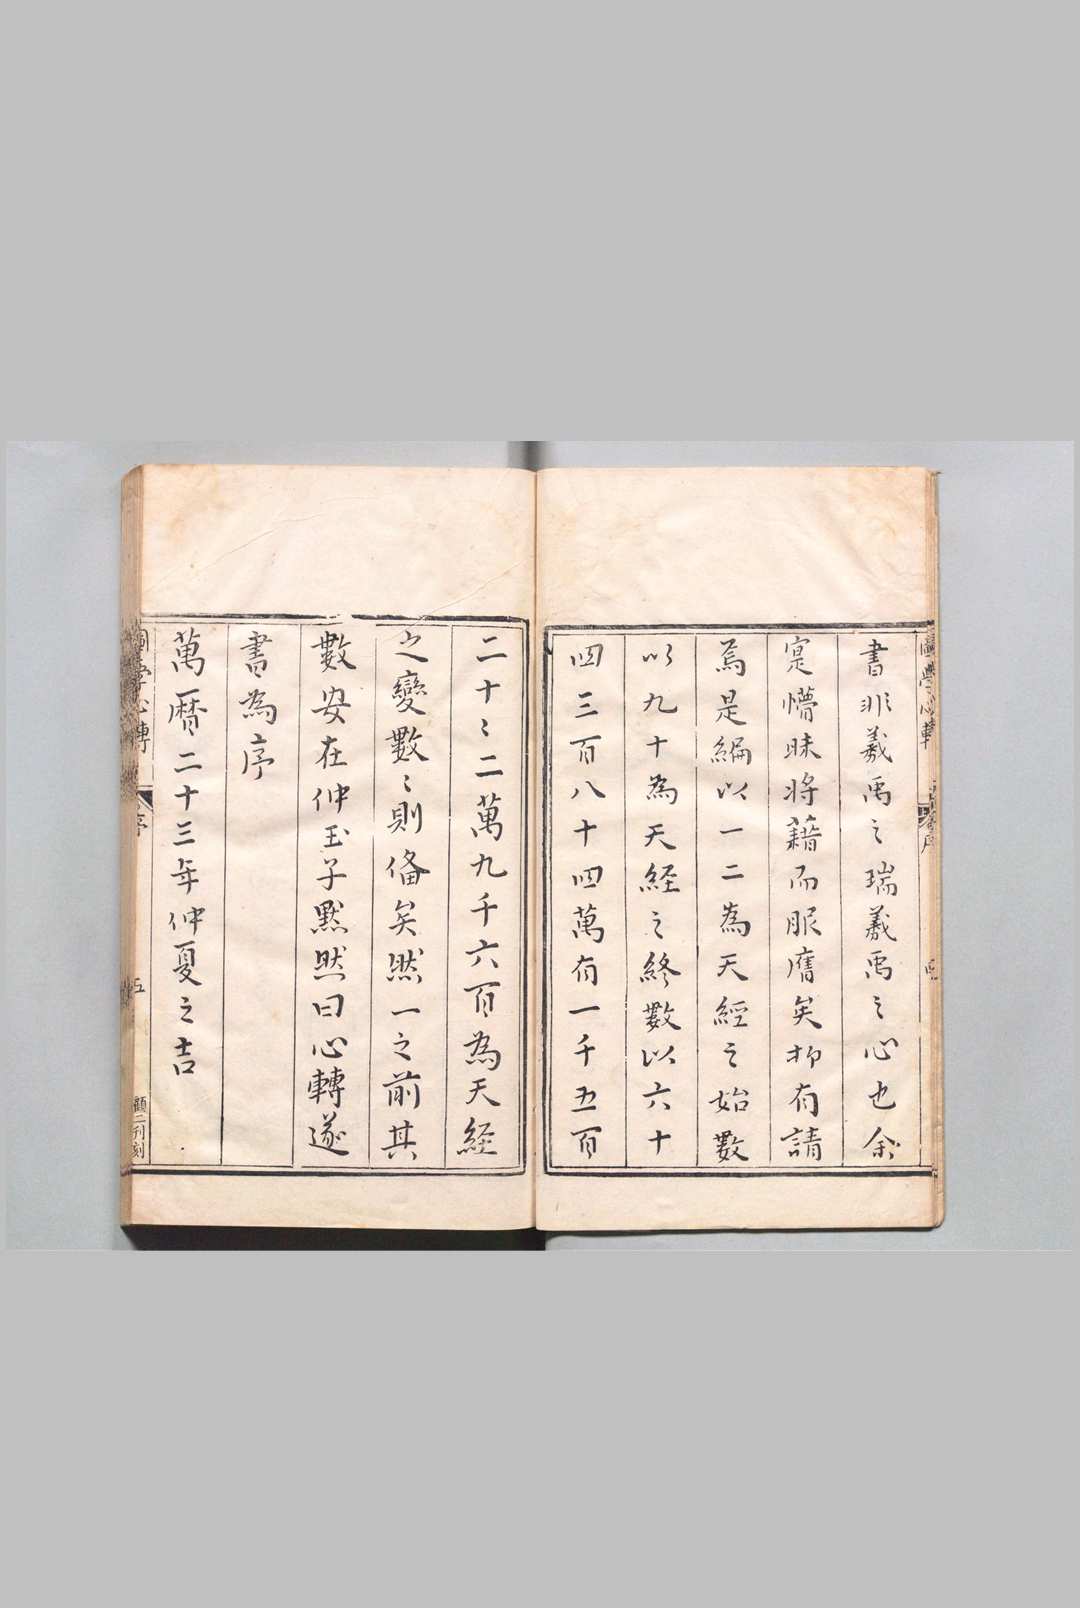 書非羲禹之瑞羲禹之心也余
寔懵昧將藉而服膺矣抑有請
焉是編以一二為天經之始數
以九十為天經之終數以六十
四三百八十四萬有一千五百
二十〻二萬九千六百為天經
之變數〻則備矣然一之前其
數安在仲玉子默然曰心轉遂
書為序
萬曆二十三年仲夏之吉
序
五
顧二刊刻